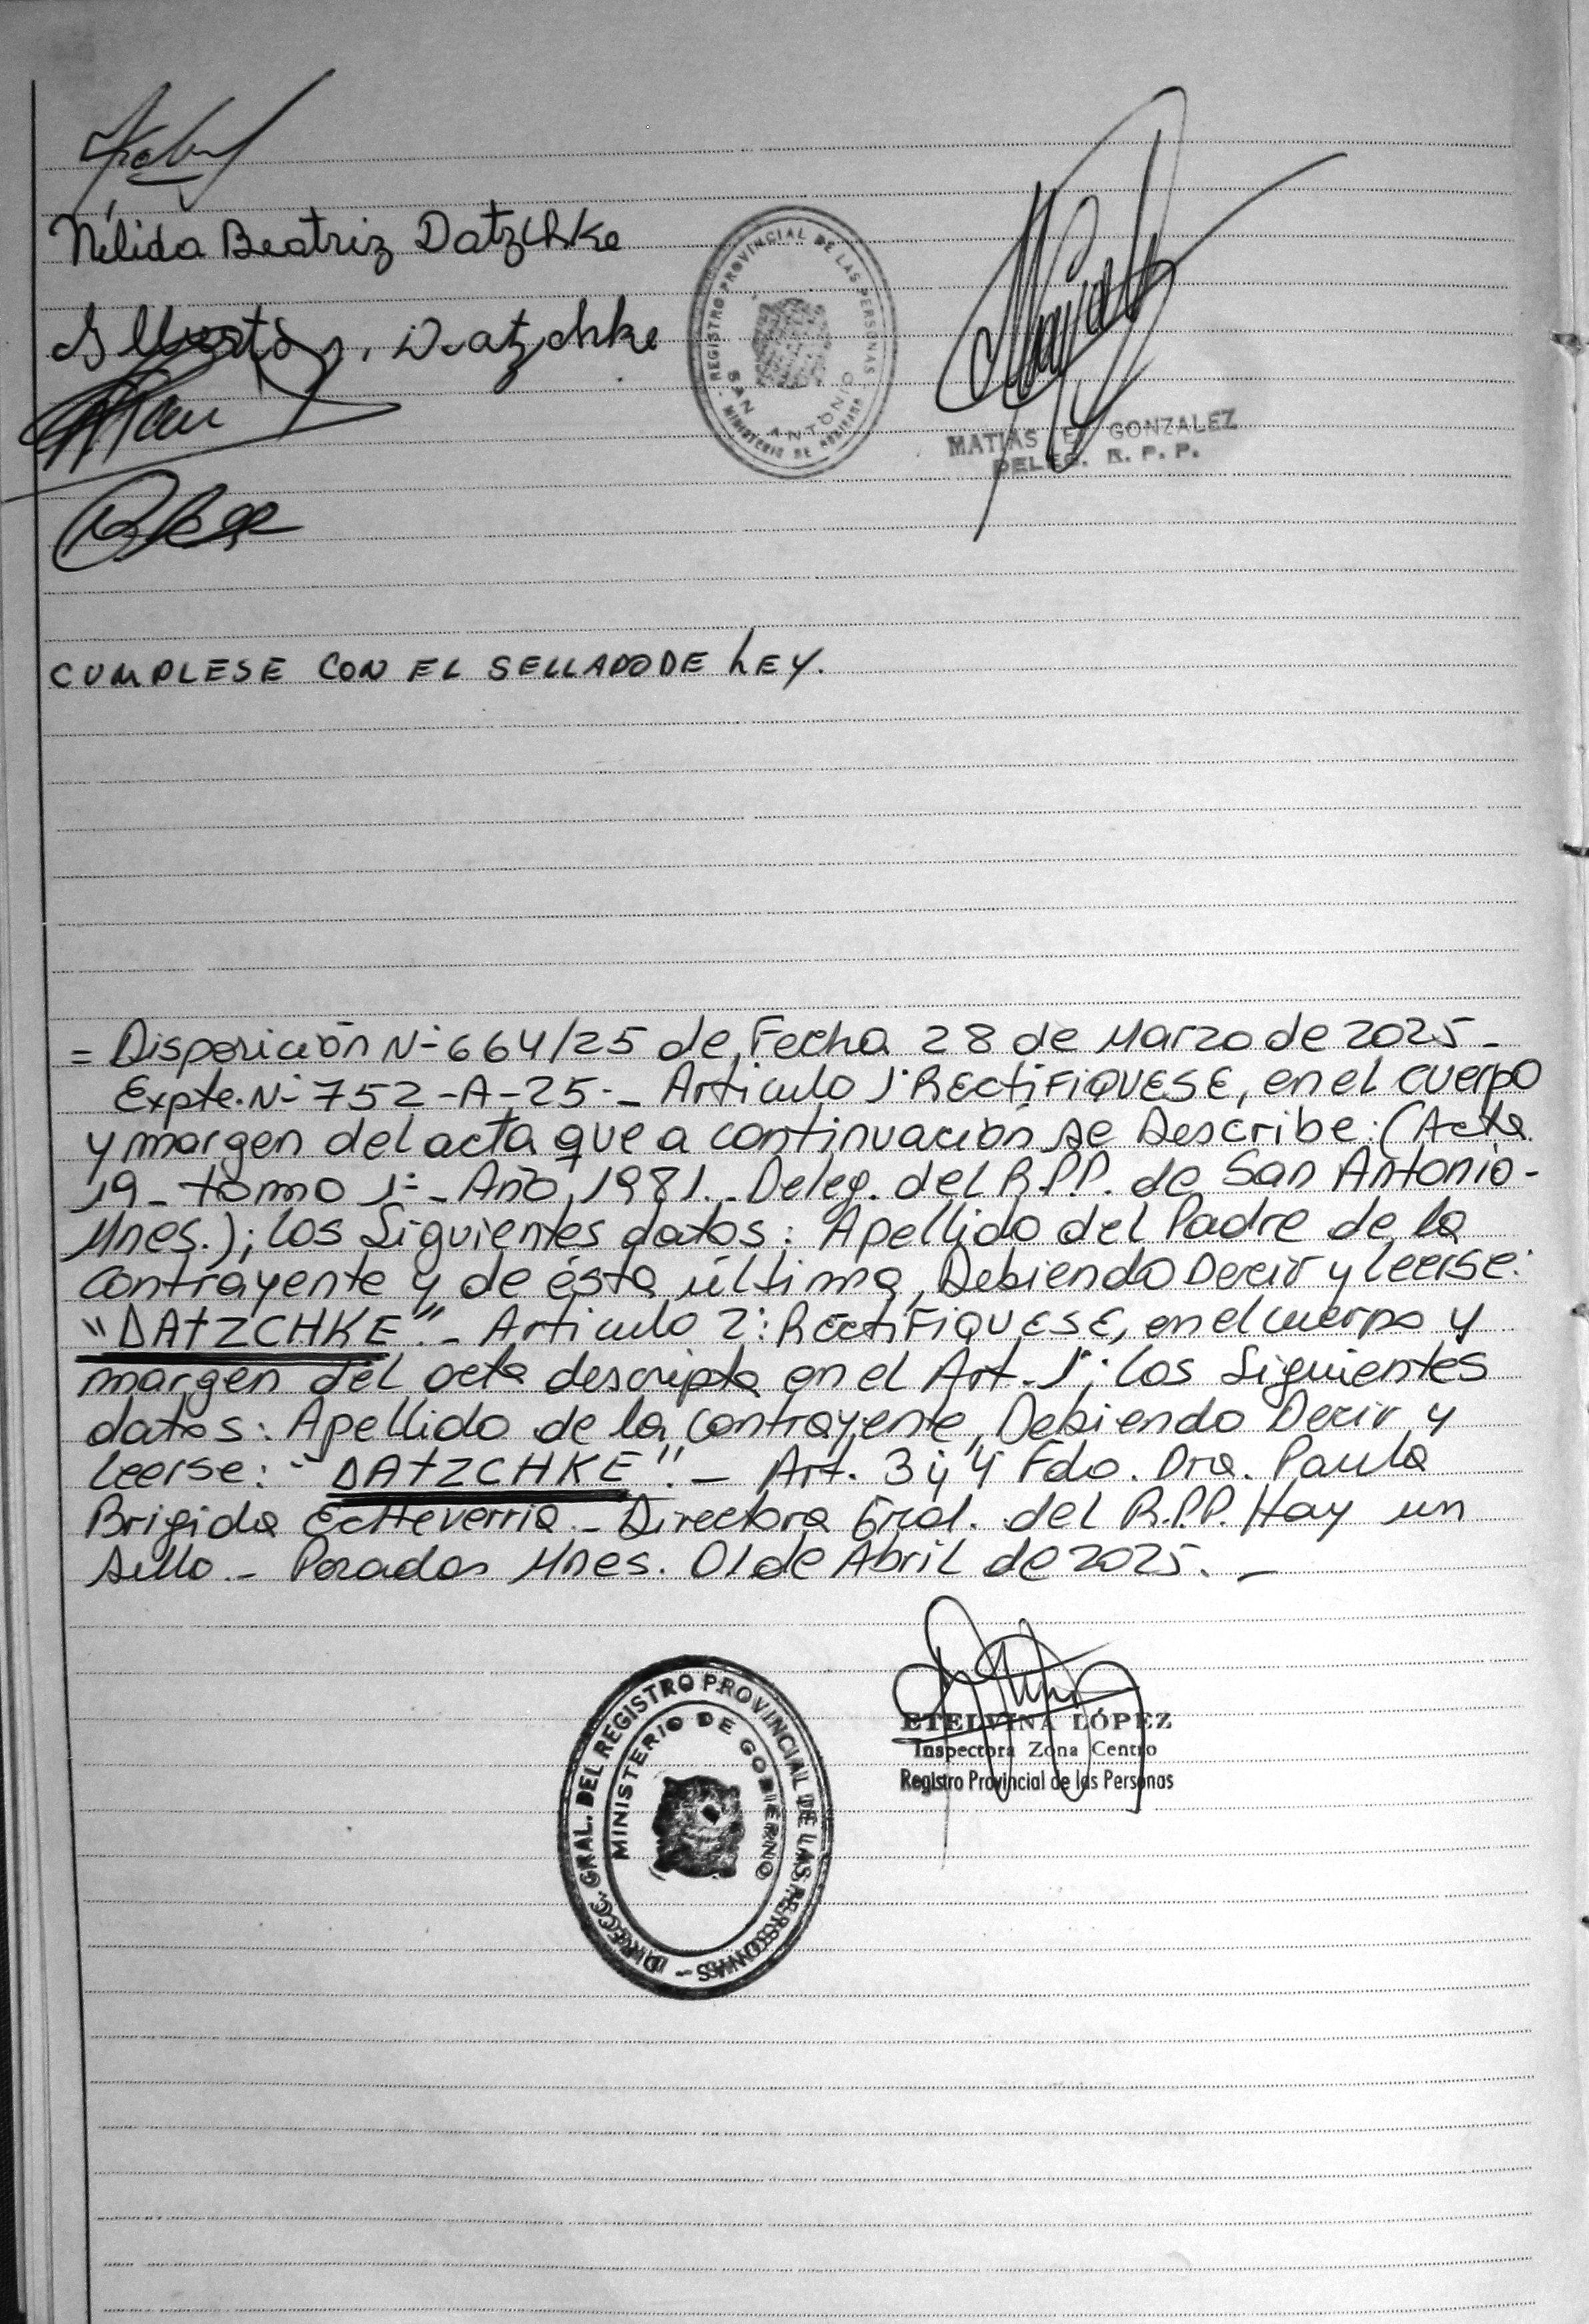 Nélida Beatriz Datzchke
Alberto , Datzchke
REGISTRO PROVINCIAL DE LAS PERSONAS
SAN ANTONIO
MINISTERIO DE
MATIAS E. GONZALEZ
DELEG. R. P. P.
CUMPLESE CON EL SELLADO DE LEY.
= Disposición N- 664/25 de Fecha 28 de Marzo de 2025 -
Expte. N- 752-A-25-- Articulo 1° RECTIFIQUESE, en el cuerpo
y margen del acta que a continuación se Describe: (Acta
19 - tomo 1° - Año 1981. - Deleg. del R.P.P. de San Antonio -
Mnes.); los Siguientes datos: Apellido del Padre de la
contrayente y de ésta última, Debiendo Decir y leerse:
"DATZCHKE". - Articulo 2: RECTIFIQUESE, en el cuerpo y
margen del acta descripta en el Art. 1°; los Siguientes
datos: Apellido de la contrayente, Debiendo Decir y
leerse: - "DATZCHKE". - Art. 3 y 4 Fdo. Dra. Paula
Brigida Echeverria. - Directora Gral. del R.P.P. Hay un
sello. - Posadas Mnes. 01 de Abril de 2025. -
DIRECC. GRAL. DEL REGISTRO PROVINCIAL DE LAS PERSONAS -
MINISTERIO DE GOBIERNO
ETELVINA LÓPEZ
Inspectora Zona Centro
Registro Provincial de las Personas